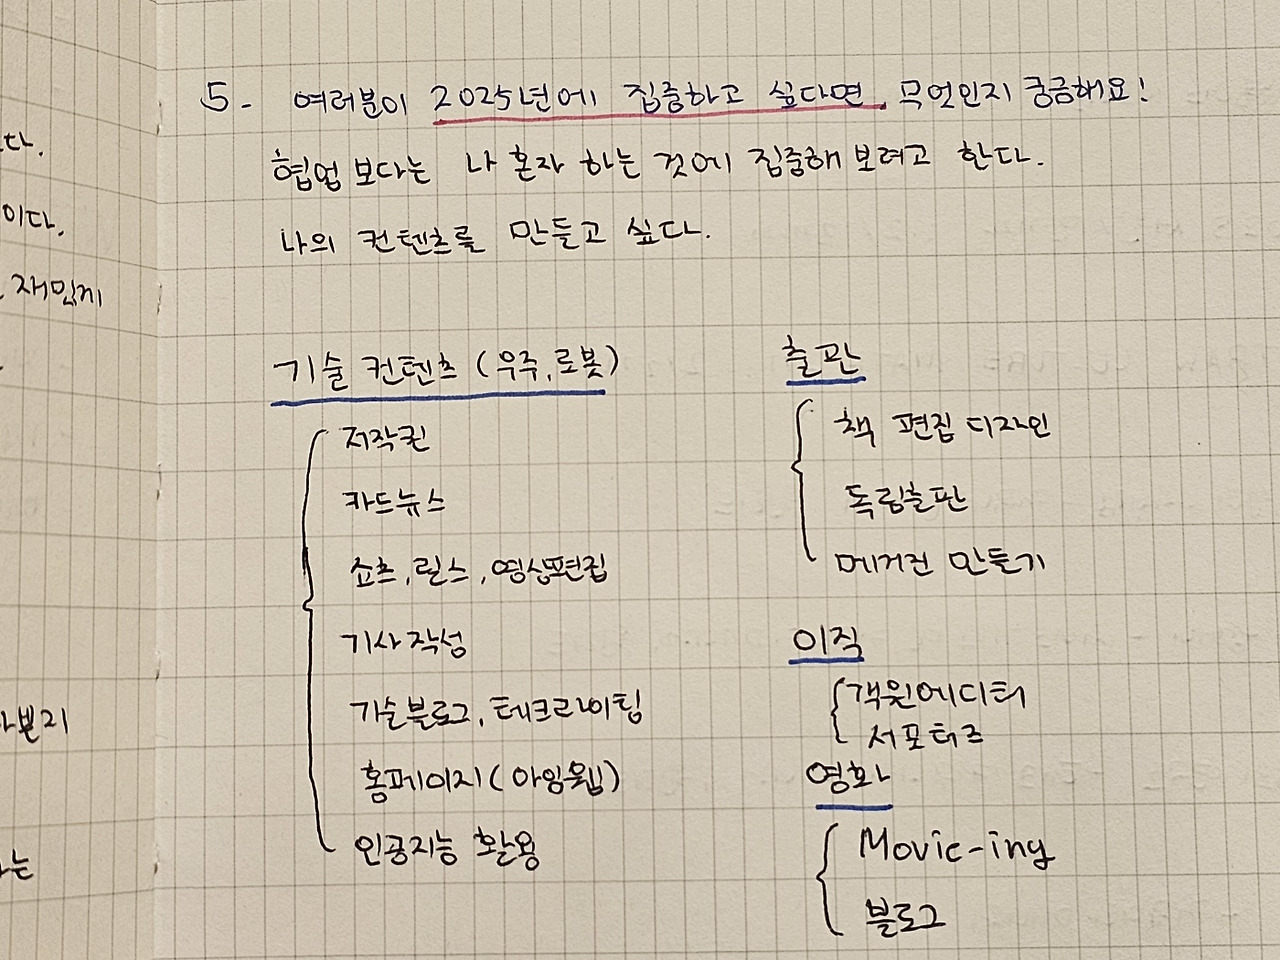 5. 여러분이 2025년에 집중하고 싶다면, 무엇인지 궁금해요!
협업 보다는 나 혼자 하는 것에 집중해 보려고 한다.
나의 컨텐츠를 만들고 싶다.
기술 컨텐츠 (우주, 로봇)
저작권
카드뉴스
쇼츠, 릴스, 영상편집
기사작성
기술블로그, 테크라이팅
홈페이지 (아임웹)
인공지능 활용
출판
책 편집 디자인
독립출판
메거진 만들기
이직
객원에디터
서포터즈
영화
Movie-ing
블로그
다.
이다.
재밌게
는